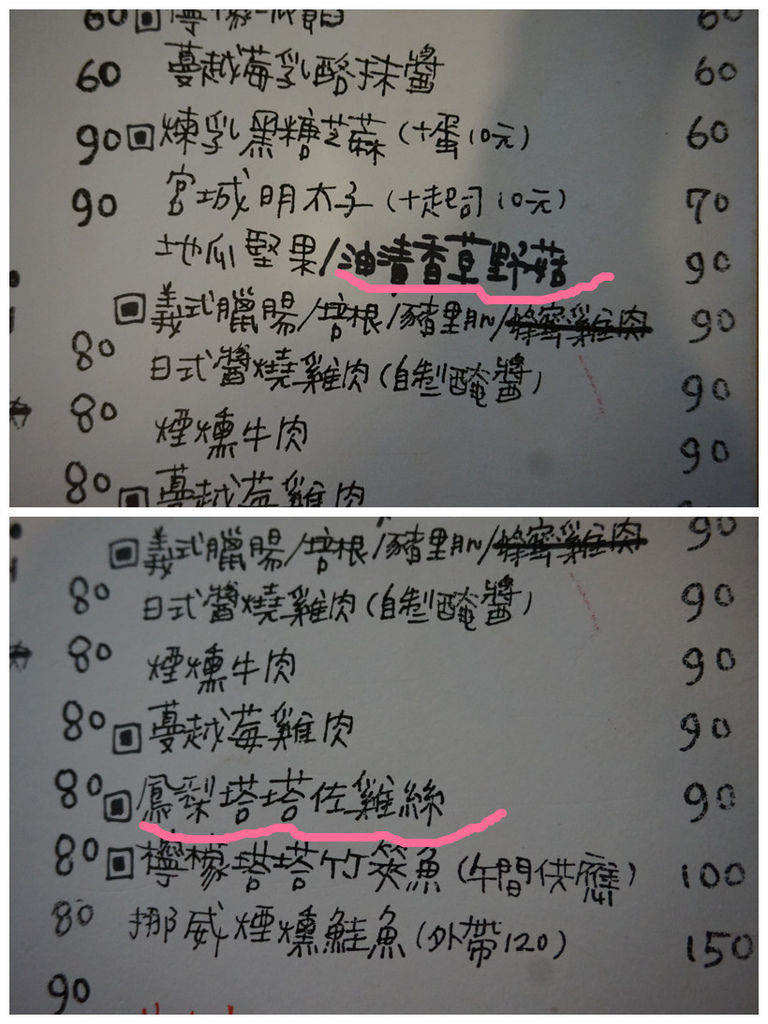 60 回 檸檬 60
60 蔓越莓乳酪抹醬 60
90 回 煉乳黑糖芝蔴(+蛋10元) 60
90 宮城明太子(+起司10元) 70
地瓜堅果/油漬香草野菇 90
回 義式臘腸/培根/豬里肌/蜂蜜雞肉 90
80 日式醬燒雞肉(自制醃醬) 90
80 煙燻牛肉 90
80 回 蔓越莓雞肉
回 義式臘腸/培根/豬里肌/蜂蜜雞肉 90
80 日式醬燒雞肉(自制醃醬) 90
80 煙燻牛肉 90
80 回 蔓越莓雞肉 90
80 回 鳳梨塔塔佐雞絲 90
80 回 檸檬塔塔竹筴魚(午間供應) 100
80 挪威煙燻鮭魚(外帶120) 150
90